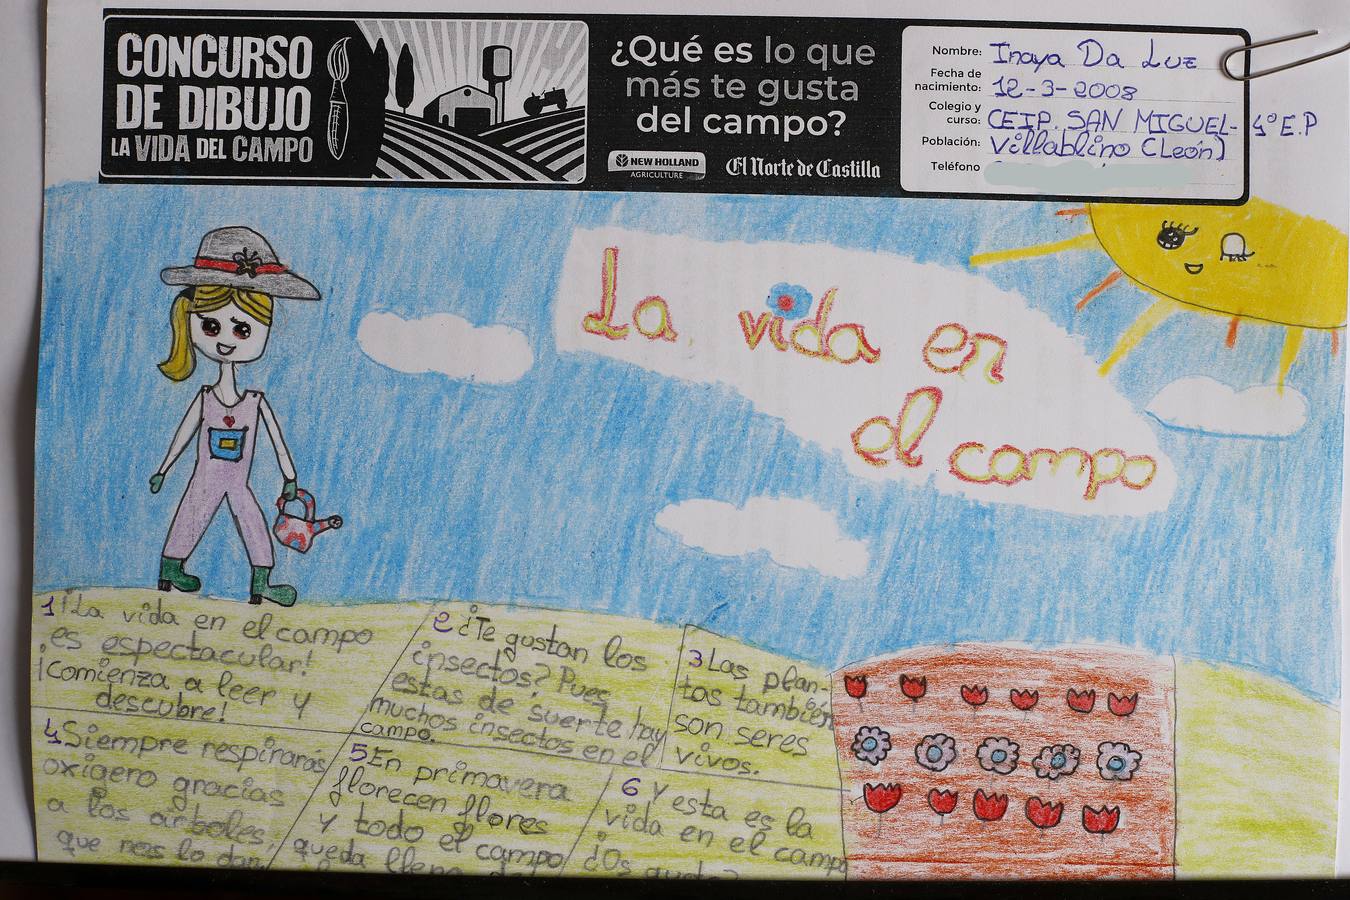 CONCURSO
DE DIBUJO
LA VIDA DEL CAMPO
¿Qué es lo que
más te gusta
del campo?
NEW HOLLAND
AGRICULTURE
El Norte de Castilla
Nombre: Inaya Da Luz
Fecha de
nacimiento: 12-3-2008
Colegio y
curso: CEIP. SAN MIGUEL- 4º E.P
Población: Villablino (León)
Teléfono
La vida en
el campo
1 ¡La vida en el campo
es espectacular!
¡comienza a leer y
descubre!
2 ¿Te gustan los
insectos? Pues
estas de suerte hay
muchos insectos en el
campo.
3 Las plan-
tas también
son seres
vivos.
4 Siempre respirarás
oxígero gracias
a los árboles,
que nos lo dan
5 En primavera
florecen flores
y todo el campo
queda lleno
6 Y esta es la
vida en el campo
¿Os gusta?